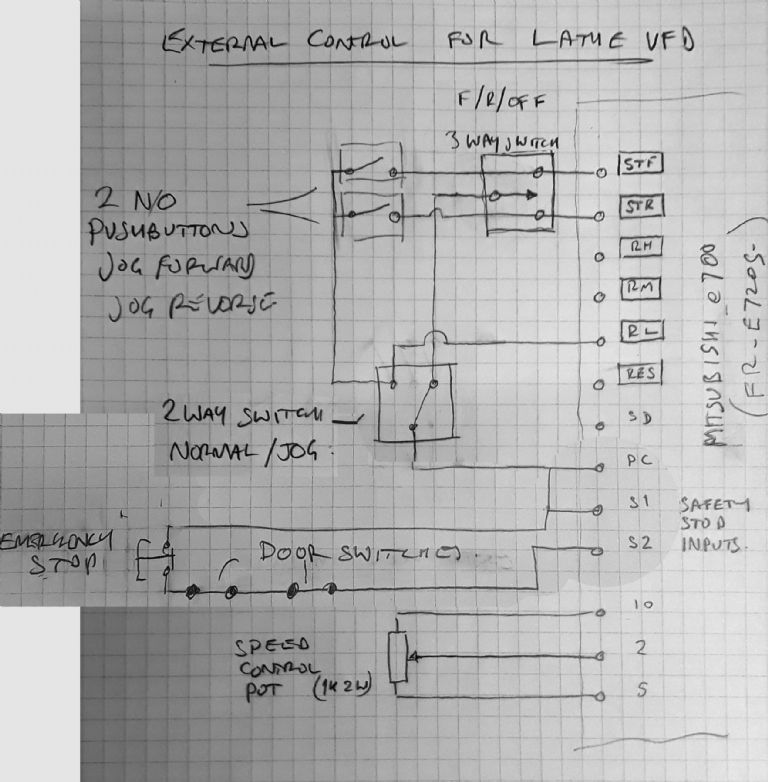 EXTERNAL CONTROL FOR LATHE VFD
F/R/OFF
3 WAY SWITCH
2 N/O
PUSHBUTTONS
JOG FORWARD
JOG REVERSE
STF
STR
RH
RM
RL
RES
SD
PC
S1
S2
10
2
5
MITSUBISHI e700
(FR-E720S-)
2 WAY SWITCH
NORMAL/JOG.
SAFETY
STOP
INPUTS.
EMERGENCY
STOP
DOOR SWITCHES.
SPEED
CONTROL
POT (1K 2W)